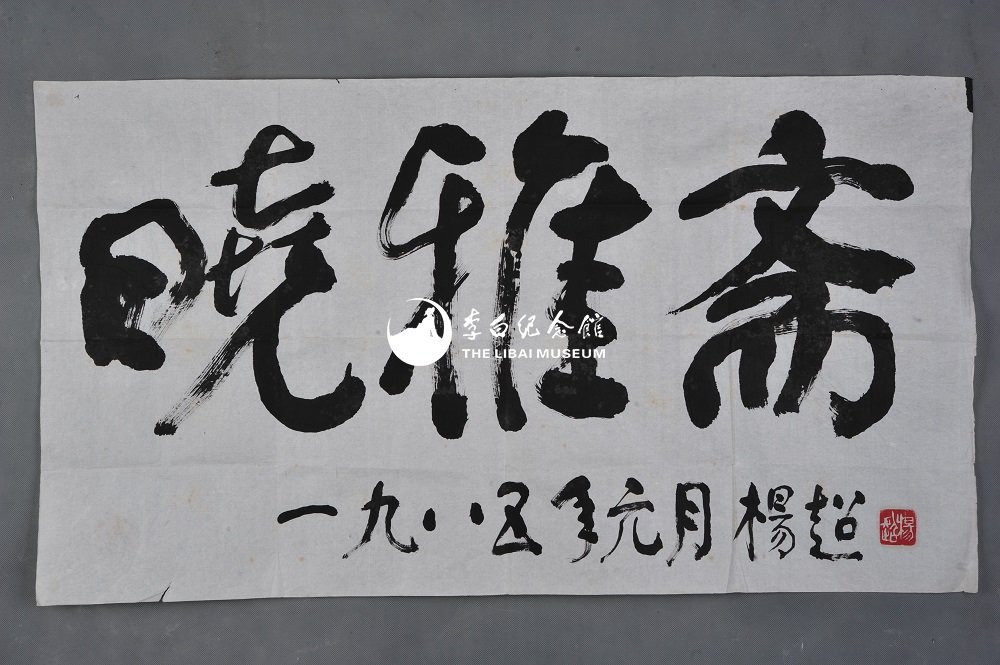 曉雅斋
李白纪念館
THE LIBAI MUSEUM
一九八五年元月 楊超
楊超